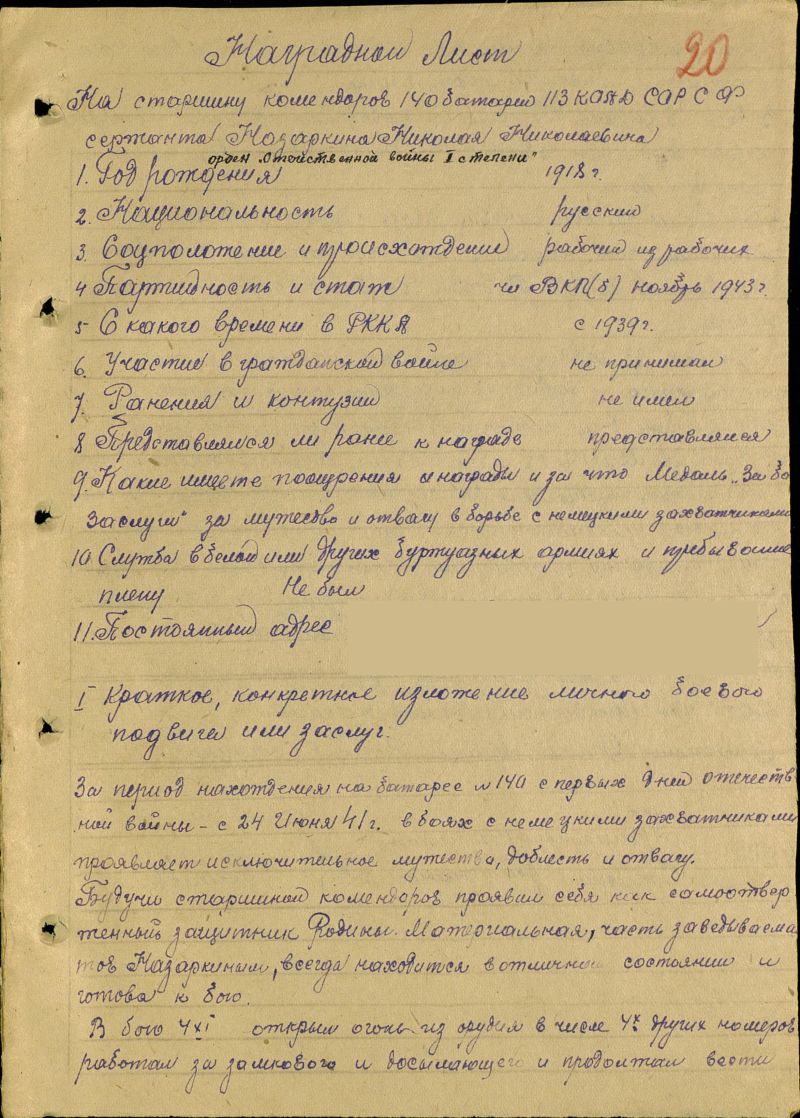 Наградной Лист
20
На старшину комендоров 140 батареи 113 КОАД САР С Ф
сержанта Назаркина Николая Николаевича
орден "Отчиственной войны I степени"
1. Год рождения 1918 г.
2. Национальность русский
3. Соцположение и происхождение рабочий из рабочих
4 Партийность и стаж чл ВКП(б) ноябрь 1943 г.
5 С какого времени в РККА с 1939 г.
6. Участие в гражданской войне не принимал
7. Ранения и контузии не имел
8 Представлялся ли ранее к награде представлялся
9. Какие имеете поощрения и награды и за что Медаль "За бо
Заслуги" за мужество и отвагу в борьбе с немецкими захватчиками
10. Служба в белой или других буржуазных армиях и пребывание
плену Не был
11. Постоянный адрес
I Краткое, конкретное изложение личного боевого
подвига или заслуг.
За период нахождения на батарее № 140 с первых дней отечеств
ной войны - с 24 Июня 41 г. в боях с немецкими захватчиками
проявляет исключительное мужество, доблесть и отвагу.
Будучи старшиной комендоров проявил себя как самоотвер
женный защитник Родины. Материальная, часть заведываема
тов Назаркиным, всегда находится в отличном состоянии и
готова к бою.
В бою 4XI открыл огонь из орудия в числе 4х других номеров
работал за замкового и досылающего и продолжал вести